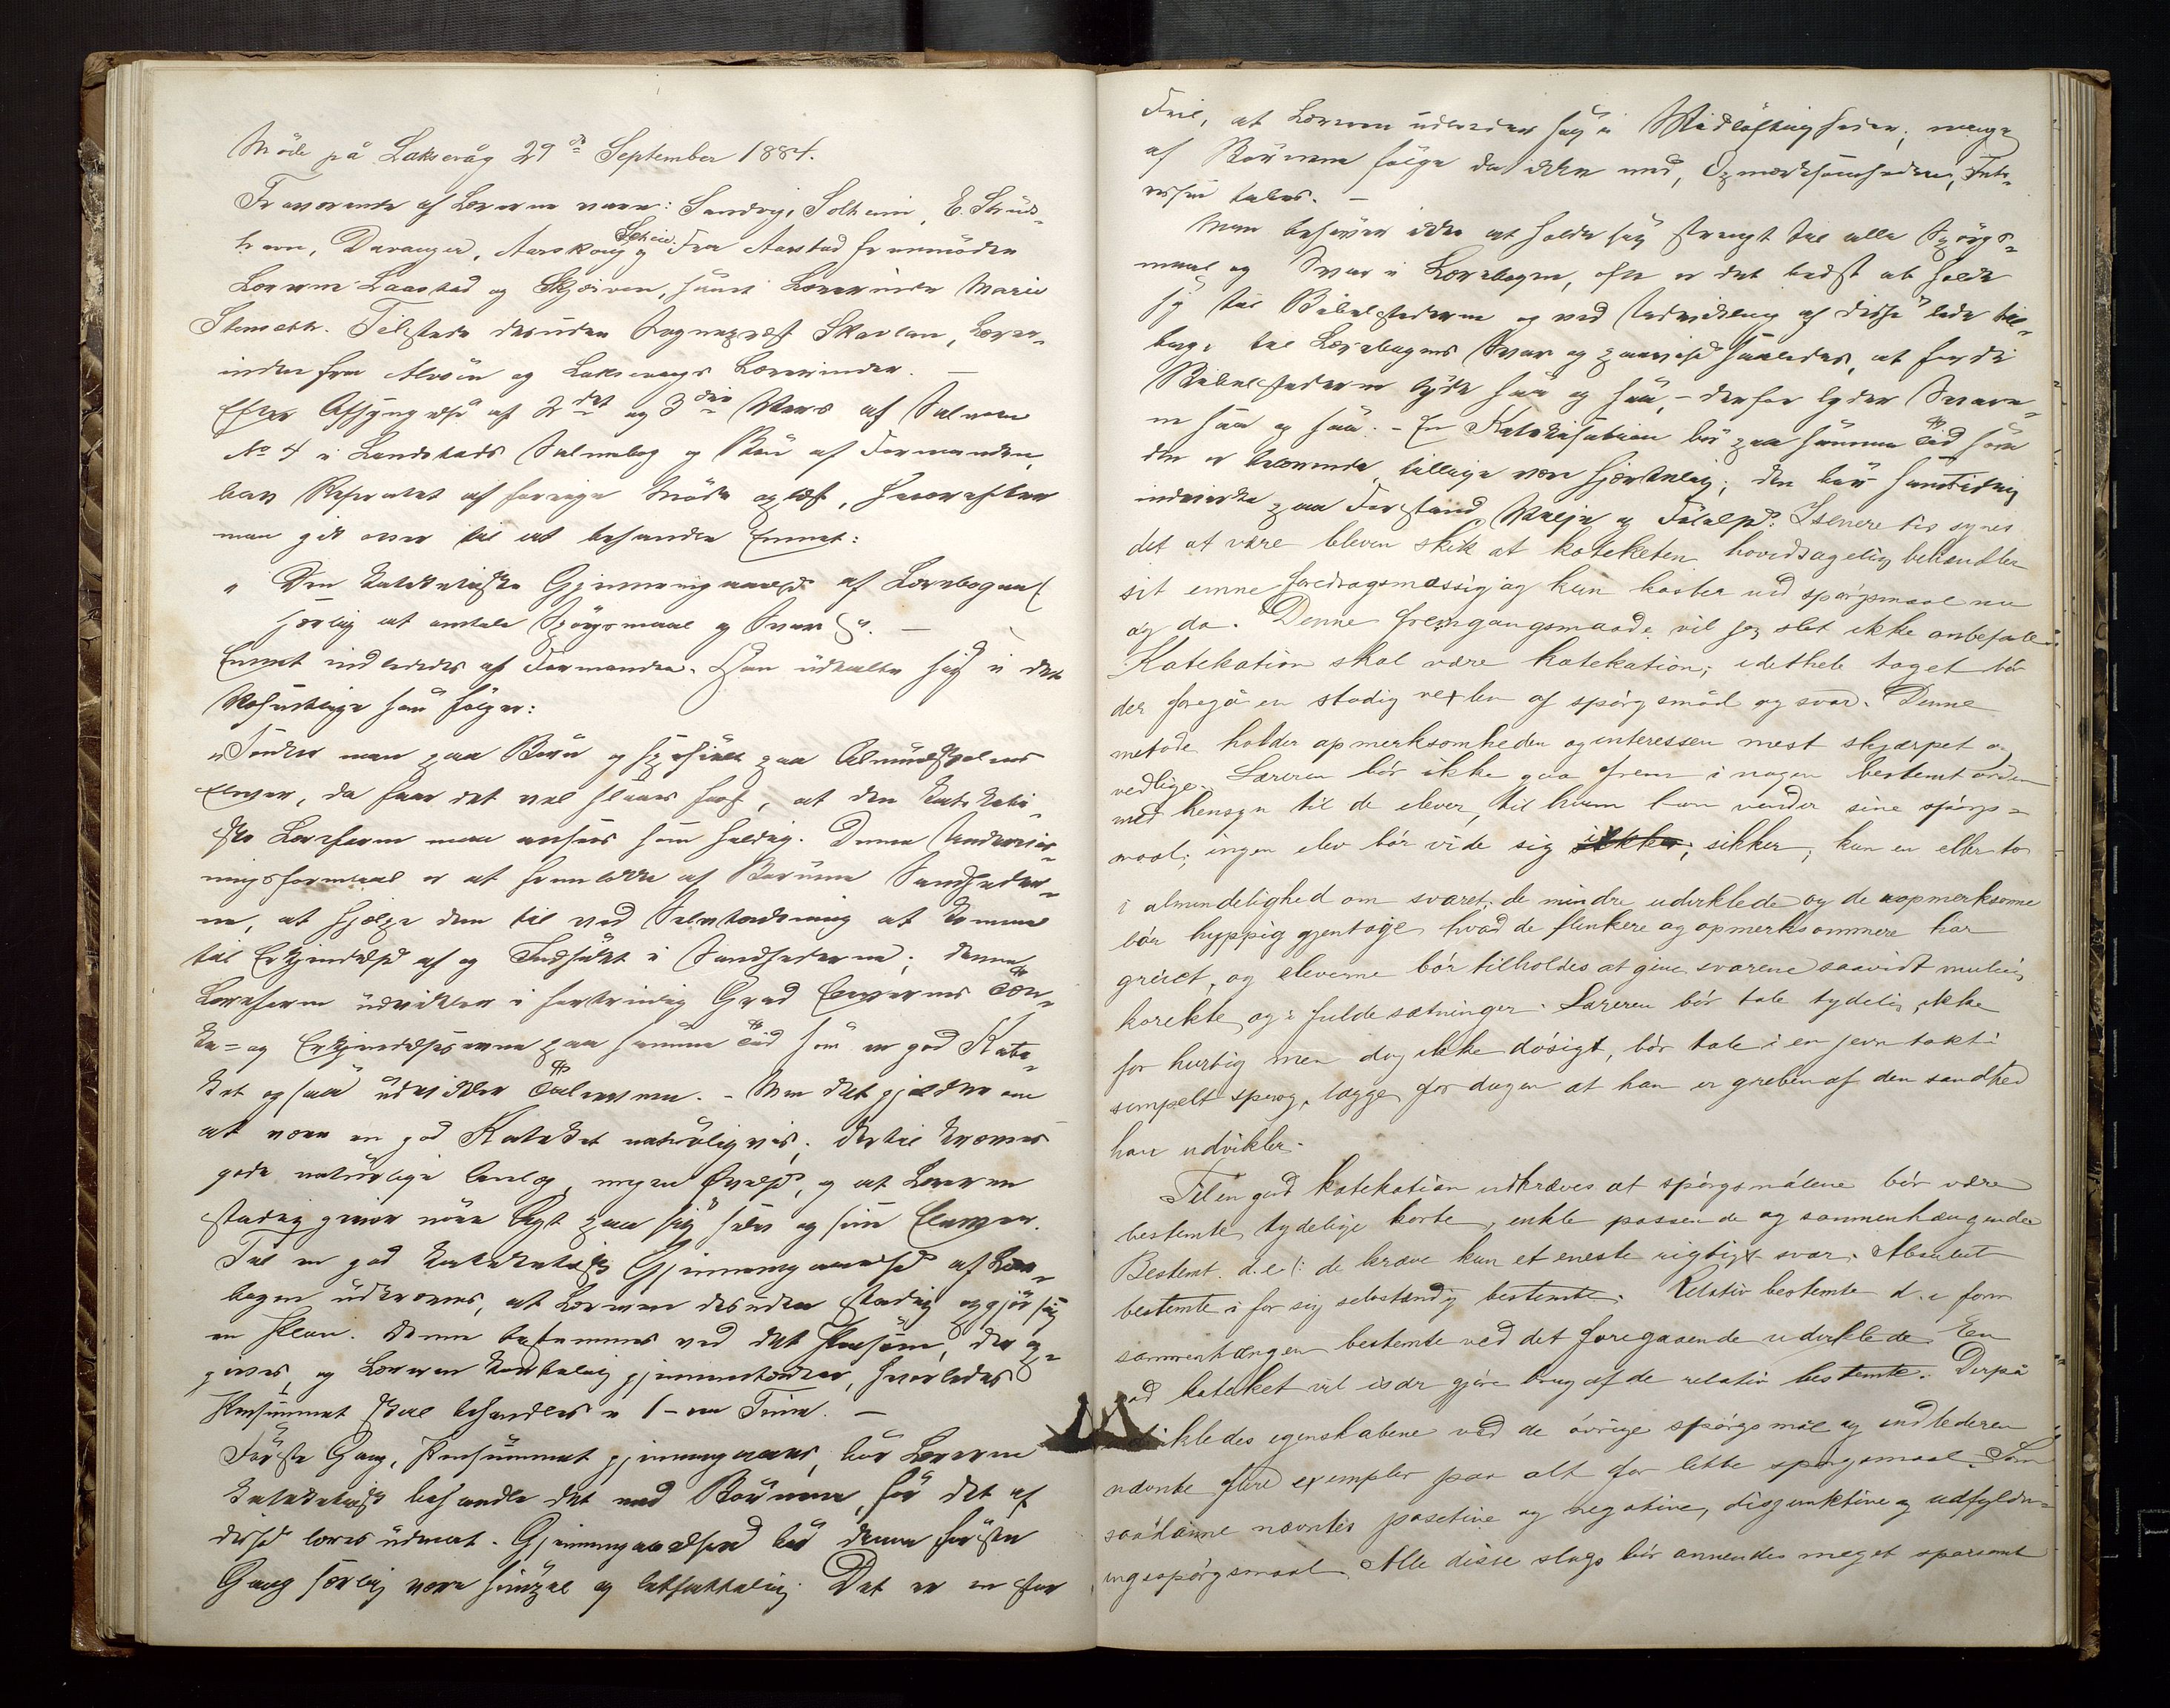 Möde på Laksevåg 29de September 1884.
Fraværende af Lærerne vare: Sandvig, Solheim, E. Strüds-
havn, Davanger, Aarskoug og Schei. Fra Aarstad fremmödte
Lærerne Laastad og Skjerven, samt Lærerinde Marie
Tilstede desuden Sognepræst Skavlan, Lærer-
inden fra Alvöen og Laksevaags Lærerinder. —
Efter Afsyngelse af 2det og 3die Vers af Salmen
No 4 i Landstads Salmebog og Bön af Formanden,
blev Referatet af forrige Möde oplæst, hvorefter
man gik over til at behandle Emnet:
„Den kateketiske Gjennemgaaelse af Lærebogen (
særlig at omtale Spörgsmaal og Svar)“. —
Emnet indlededes af Formanden. Han üdtalte sig i det
Væsentlige som fölger:
„Tænker man paa Börn og specielt paa Almueskolens
Elever, da faar det vel slaaes fast, at den kateketi-
ske Læreform maa ansees som heldig. Denne Undervis-
ningsformaal er at fremlokke af Börnene Sandheder-
ne, at hjælpe dem til ved Selvtænkning at komme
til Erkjendelse af og Indsigt i Sandhederne; denne
Læreform üdvikler i fortrinlig Grad Elevernes Tæn-
ke- og Erkjendelsesevne paa samme Tid som en god Kate-
ket ogsaa üdvikler Taleevnen. - Men det gjælder om
at være en god Kateket naturligvis; dertil kræves
gode natürlige Anlæg, megen Övelse, og at Læreren
stadig giver nöie Agt paa sig selv og sine Elever.
Til en god kateketisk Gjennemgaaelse af Lære-
bogen üdkræves, at Læreren desuden stadig opgjör sig
en Plan. Denne bestemmes ved det Pensum, der op-
gives, og Læreren maa gjennemtænke, hvorledes
Pensummet skal behandles i 1 - en Time. —
Förste Gang, Pensummet gjennemgaaes, bör Læreren
kateketisk behandle det med Börnene, för det af
disse læres üdenat. Gjennemgaaelsen bör denne förste
Gang særlig være simpel og letfattelig. Det er en stor
Feil, at Læreren üdbreder sig i Vidlöftigheder; mange
af Börnene fölge da ikke med, Opmærksomheden, Inte-
ressen tabes. —
Man behöver ikke at holde sig strengt til alle Spörgs-
maal og Svar i Lærebogen, ofte er det bedst at holde
sig til Bibelstederne og ved Udvikling af disse lede til-
bage til Lærebogens Svar og paavise saaledes, at fordi
Bibelstederne lyde saa og saa, - derfor lyder Svare-
ne saa og saa. - En Katekisation bör paa samme Tid som
den er belærende tillige være hjertelig; den bör samtidig
indvirke paa Forstand, Vilje og Fölelse. I senere tid synes
det at være bleven skik at kateketen hovedsagelig behandler
sit emne foredragsmæssig og kun kaster ud spørgsmaal nu
og da. Denne fremgangsmaade vil jeg slet ikke anbefale.
Katekation skal være katekation; i dethele taget bör
der foregå en stadig vexlen af spörgsmål og svar. Denne
metode holder opmerksomheden og interessen mest skjærpet og
vedlige. Læreren bör ikke gaa frem i nogen bestemt orden
med hensyn til de elever, til hvem han vender sine spörgs-
maal; ingen elev bör vide sig ikke, sikker; kun en eller to
i almindelighed om svaret; de mindre udviklede og de uopmerksomme
bör hyppig gjentage hvad de flinkere og opmerksommere har
greiet, og eleverne bör tilholdes at give svarene saavidt mulig
korekte og i fulde sætninger. Læreren bör tale tydelig, ikke
for hurtig men dog ikke dösigt, bör tale i en jevn takt i
simpelt sprog, lægge for dagen at han er greben af den sandhed
han udvikler.
Til en god katekation udkræves at spörgsmålene bör være
bestemte, tydelige korte, enkle passende og sammenhængende
Bestemt. d.e. (: de kræve kun et eneste rigtigt svar. Absolut
bestemte i for sig selvstændig bestemte. Relativ bestemte d. e form
sammenhængen bestemte ved det foregaaende udviklede. En
god kateket vil især gjöre brug af de relativ bestemte. Derpå
udvikledes egenskabene ved de övrige spörgsmål og indlederen
nævnte flere exempler paa alt for lette spörgsmaal. Som
saadanne nævntes posetive og negative, disjunktive og udfyldn-
ingsspörgsmaal. Alle disse slags bör anvendes meget sparsomt